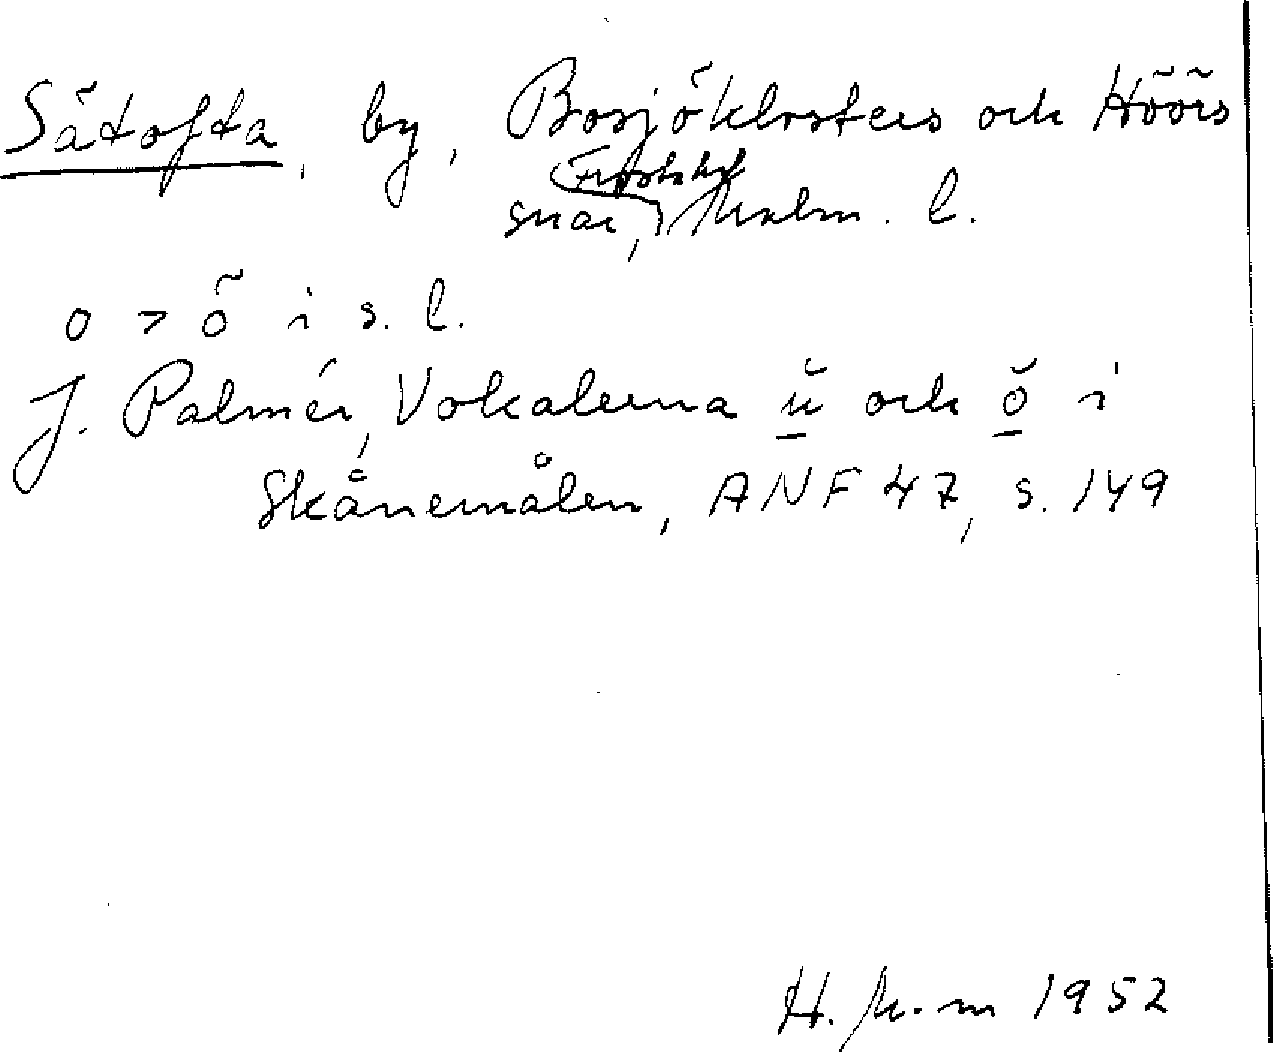 Sätofta, by, Bosjöklosters och Höörs
Frosta hd
snar, Malm. l.
o > ö i s. l.
J. Palmér, Vokalerna ŭ och ŏ i
Skånemålen, ANF 47, s. 149
H. M-m 1952